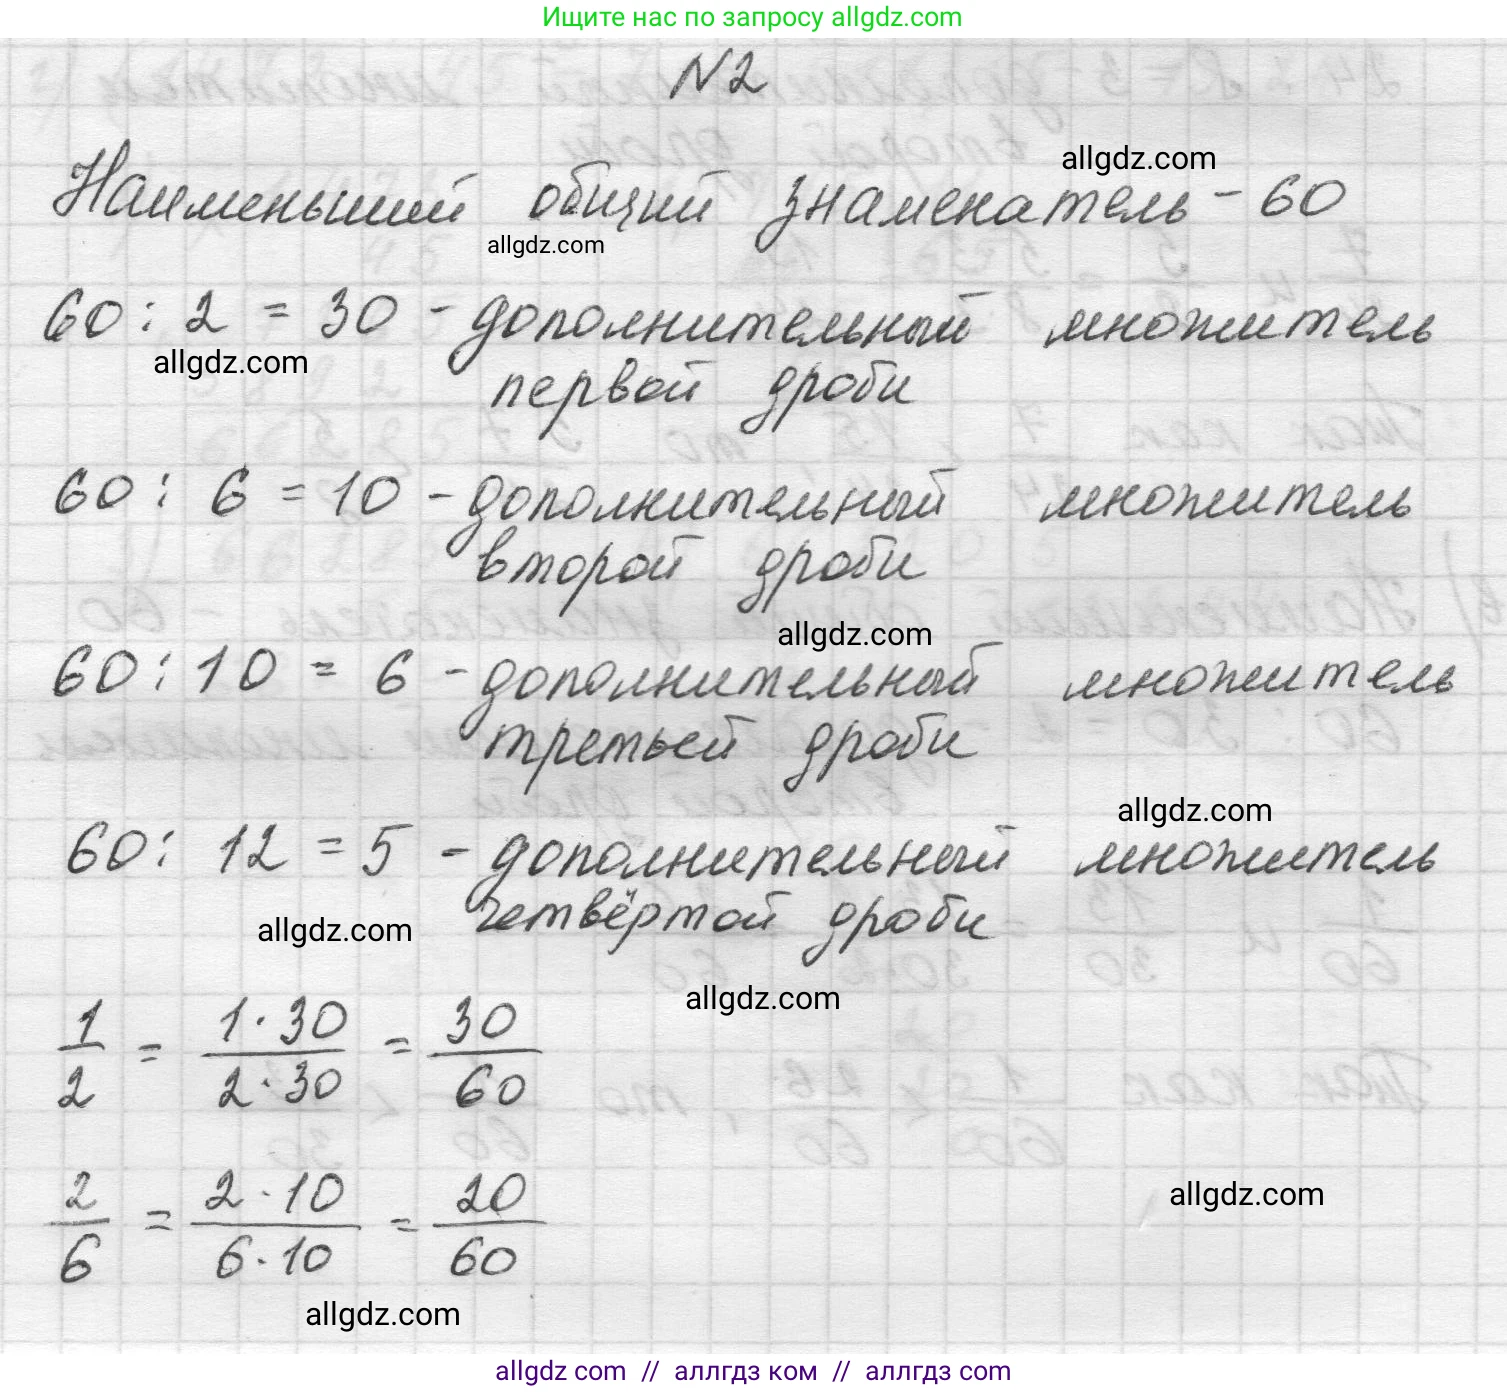 Ищите нас по запросу allgdz.com
№2
allgdz.com
Наименьший общий знаменатель - 60
allgdz.com
60 : 2 = 30 - дополнительный множитель
allgdz.com
первой дроби
60 : 6 = 10 - дополнительный множитель
второй дроби
allgdz.com
60 : 10 = 6 - дополнительный множитель
третьей дроби
allgdz.com
60 : 12 = 5 - дополнительный множитель
четвёртой дроби
allgdz.com
allgdz.com
1/2 = 1·30/2·30 = 30/60
2/6 = 2·10/6·10 = 20/60
allgdz.com
allgdz.com
allgdz.com // аллгдз ком // аллгдз com